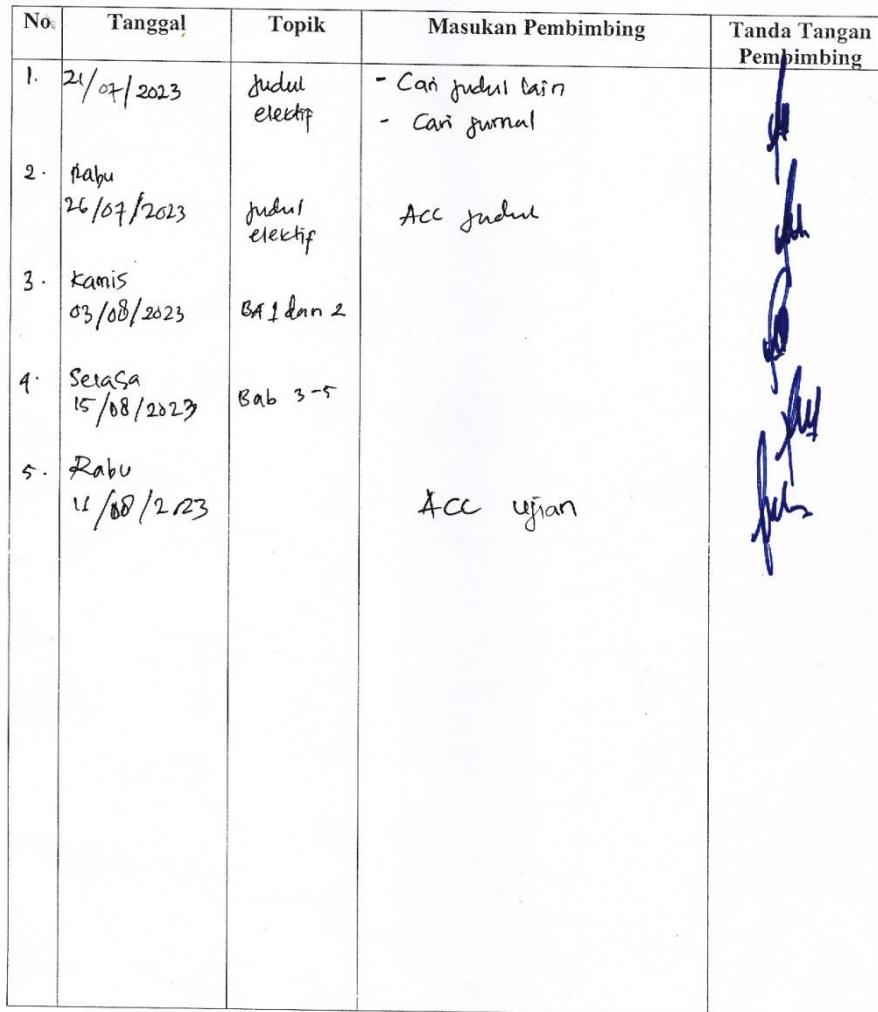 No Tanggal Topik Masukan Pembimbing Tanda Tangan Pembimbing
1. 21/07/2023 Judul elektif - Cari judul lain
- Cari jurnal
2. Rabu
26/07/2023 Judul elektif ACC Judul
3. Kamis
03/08/2023 BA 1 dan 2
4. Selasa
15/08/2023 Bab 3-5
5. Rabu
/08/2023 ACC ujian